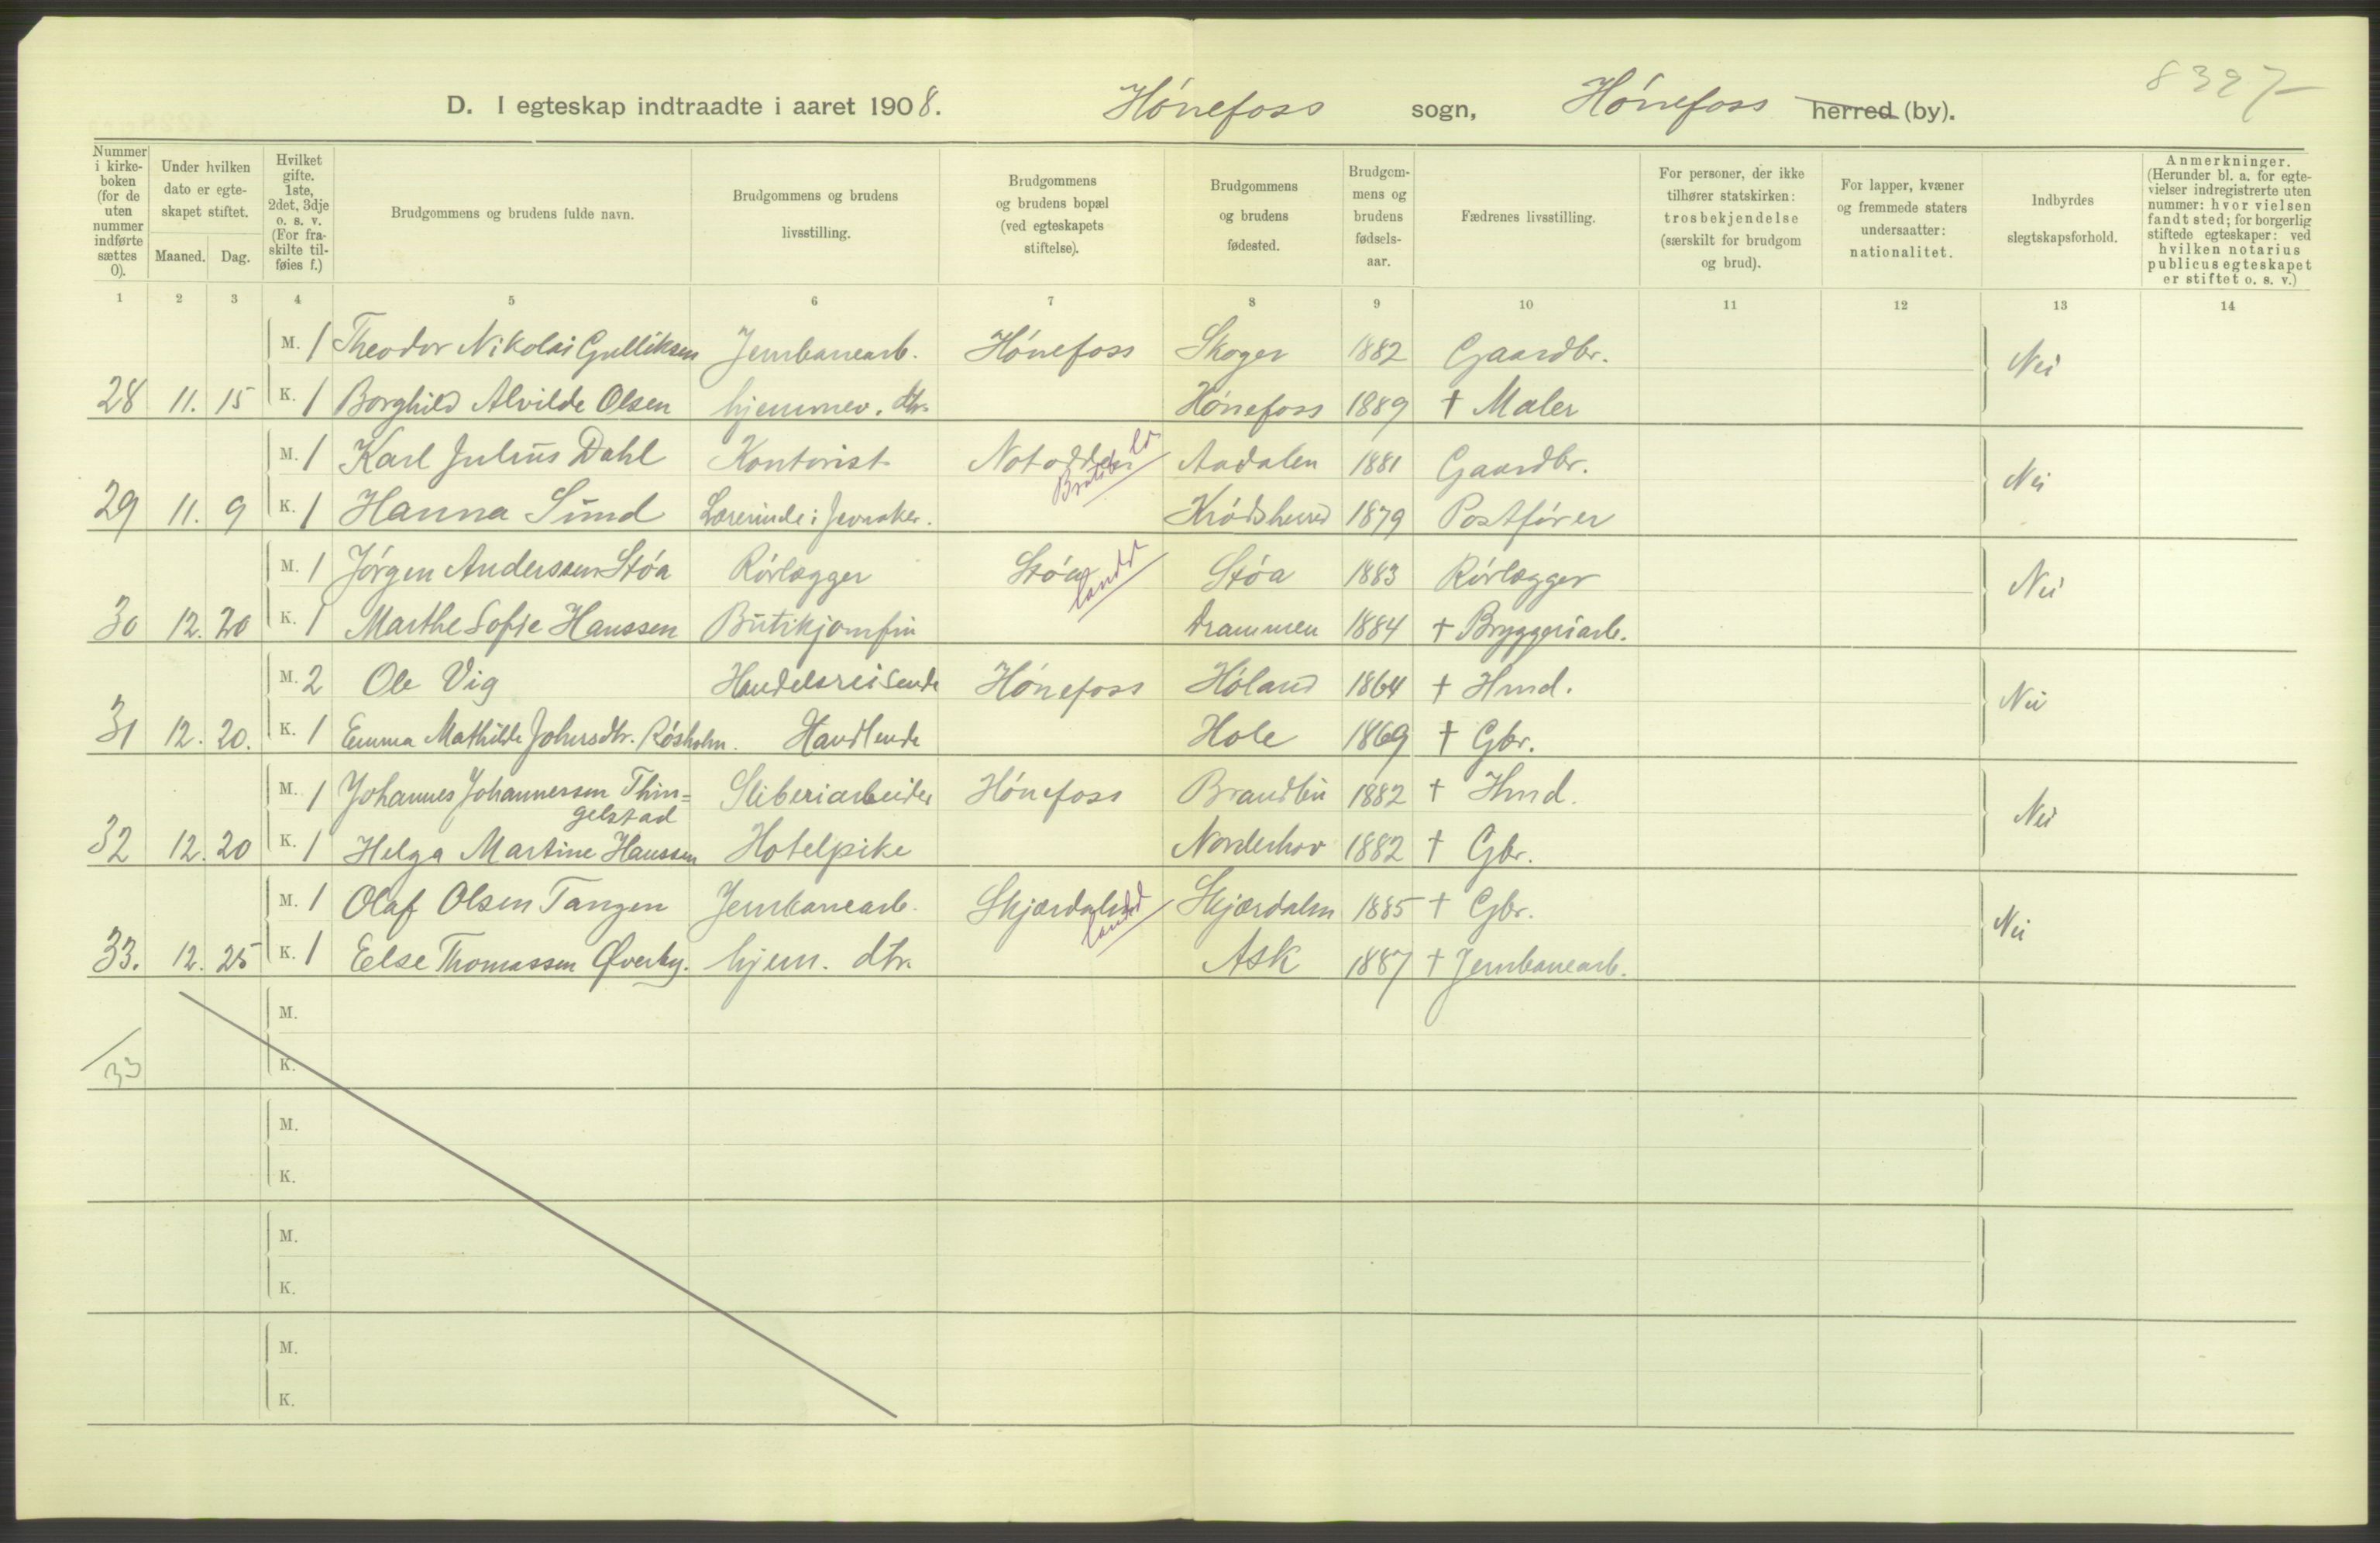 8397
D. I egteskap indtraadte i aaret 1908. Hónefoss sogn, Hónefoss herred (by).
Nummer i kirkeboken (for de uten nummer indførte sættes 0). Under hvilken dato er egteskapet stiftet. Maaned. Dag. Hvilket gifte. 1ste, 2det, 3dje o. s. v. (For fraskilte tilføies f.) Brudgommens og brudens fulde navn. Brudgommens og brudens livsstilling. Brudgommens og brudens bopæl (ved egteskapets stiftelse). Brudgommens og brudens fødested. Brudgommens og brudens fødselsaar. Fædrenes livsstilling. For personer, der ikke tilhører statskirken: trosbekjendelse (særskilt for brudgom og brud). For lapper, kvæner og fremmede staters undersaatter: nationalitet. Indbyrdes slegtskapsforhold. Anmerkninger. (Herunder bl. a. for egtevielser indregistrerte uten nummer: hvor vielsen fandt sted; for borgerlig stiftede egteskaper: ved hvilken notarius publicus egteskapet er stiftet o. s. v.)
1 2 3 4 5 6 7 8 9 10 11 12 13 14
M. 1 Theodor Nikolai Gulliksen Jernbanearb. Hónefoss Skoger 1882 Gaardbr. Nei
28 11. 15 K. 1 Borghild Alvilde Olsen hjemmev. dtr. Hónefoss 1889 † Maler
M. 1 Karl Julius Dahl Kontorist Notodden Aadalen 1881 Gaardbr. Nei
29 11. 9 K. 1 Hanna Sund Lærerinde i Jevnaker. Krødsherred 1879 Postfører
M. 1 Jørgen Anderssen Støa Rørlægger Støa landd Støa 1883 Rørlægger Nei
30 12. 20 K. 1 Marthe Sofie Hanssen Butikjomfru Drammen 1884 † Bryggeriarb.
M. 2 Ole Vig Handelsreisende Hónefoss Høland 1864 † Hmd. Nei
31 12. 20. K. 1 Emma Mathilde Johnsdtr. Røsholm. Handlende Hole 1869 † Gbr.
M. 1 Johannes Johannessen Thin=
gelstad Sliberiarbeider Hónefoss Brandbu 1882 † Hmd. Nei
32 12. 20 K. 1 Helga Martine Hanssen Hotelpike Norderhov 1882 † Gbr.
M. 1 Olaf Olsen Tangen Jernbanearb. Skjærdalen landd Skjærdalen 1885 † Gbr. Nei
33. 12. 25 K. 1 Eelse Thomassen Øverby. hjem. dtr. Ask 1887 † Jernbanearb.
M.
33 K.
M.
K.
M.
K.
M.
K.